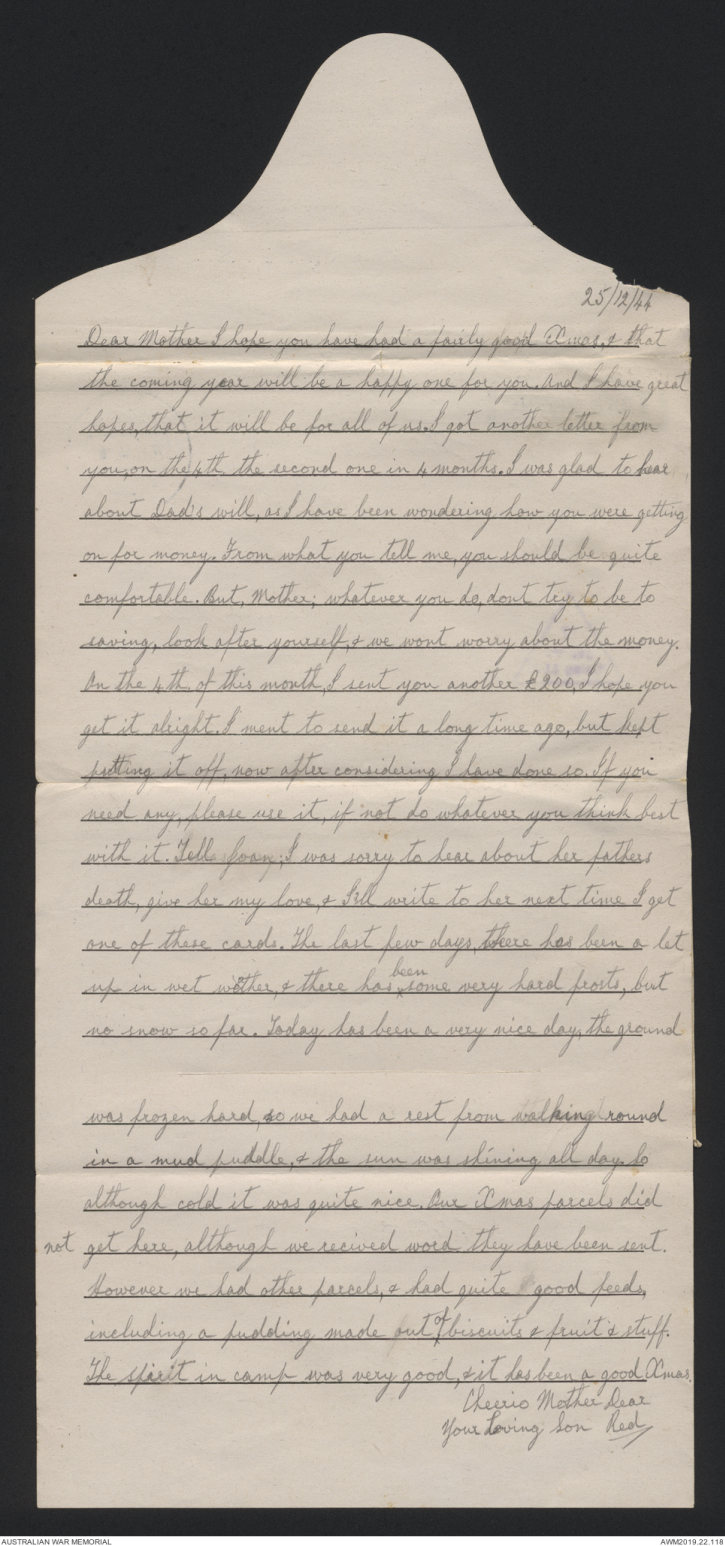 25/12/44
Dear Mother I hope you have had a fairly good Xmas, & that
the coming year will be a happy one for you. And I have great
hopes, that it will be for all of us. I got another letter from
you, on the 4th, the second one in 4 months. I was glad to hear
about Dad's will, as I have been wondering how you were getting
on for money. From what you tell me, you should be quite
comfortable. But, Mother; whatever you do, dont try to be to
saving, look after yourself, & we wont worry about the money.
On the 4th, of this month, I sent you another £200, I hope you
get it alright. I ment to send it a long time ago, but kept
putting it off, now after considering I have done so. If you
need any, please use it, if not do whatever you think best
with it. Tell Joan; I was sorry to hear about her fathers
death, give her my love, & I'll write to her next time I get
one of these cards. The last few days, there has been a let
up in wet wether, & there has been some very hard frosts, but
no snow so far. Today has been a very nice day, the ground
was frozen hard, so we had a rest from walking round
in a mud puddle, & the sun was shining all day. So
although cold it was quite nice. Our Xmas parcels did
not get here, although we recived word they have been sent.
However we had other parcels, & had quite good feeds,
including a pudding made out of biscuits & fruit & stuff.
The spirit in camp was very good, & it has been a good Xmas.
Cheerio Mother Dear
Your Loving Son Red
AUSTRALIAN WAR MEMORIAL
AWM2019.22.118